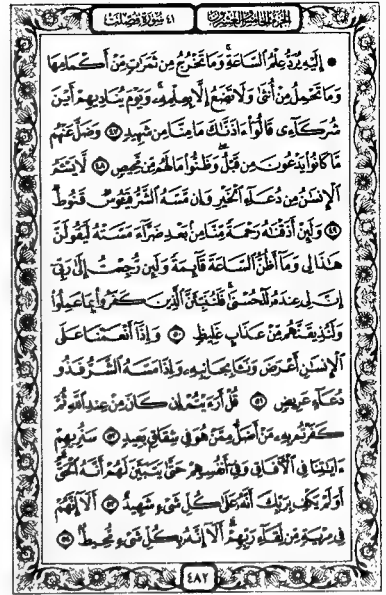 الجزء الخامس والعشرون
٤١ سورة فصلت
إِلَيْهِ يُرَدُّ عِلْمُ السَّاعَةِ وَمَا تَخْرُجُ مِن ثَمَرَاتٍ مِّنْ أَكْمَامِهَا
وَمَا تَحْمِلُ مِنْ أُنثَىٰ وَلَا تَضَعُ إِلَّا بِعِلْمِهِ وَيَوْمَ يُنَادِيهِمْ أَيْنَ
شُرَكَاءِى قَالُوا ءَاذَنَّاكَ مَا مِنَّا مِن شَهِيدٍ ٤٧ وَضَلَّ عَنْهُم
مَّا كَانُوا يَدْعُونَ مِن قَبْلُ وَظَنُّوا مَا لَهُم مِّن مَّحِيصٍ ٤٨ لَّا يَسْئَمُ
الْإِنسَانُ مِن دُعَاءِ الْخَيْرِ وَإِن مَّسَّهُ الشَّرُّ فَيَئُوسٌ قَنُوطٌ
٤٩ وَلَئِنْ أَذَقْنَاهُ رَحْمَةً مِّنَّا مِن بَعْدِ ضَرَّاءَ مَسَّتْهُ لَيَقُولَنَّ
هَٰذَا لِى وَمَا أَظُنُّ السَّاعَةَ قَائِمَةً وَلَئِن رُّجِعْتُ إِلَىٰ رَبِّى
إِنَّ لِى عِندَهُ لَلْحُسْنَىٰ فَلَنُنَبِّئَنَّ الَّذِينَ كَفَرُوا بِمَا عَمِلُوا
وَلَنُذِيقَنَّهُم مِّنْ عَذَابٍ غَلِيظٍ ٥٠ وَإِذَا أَنْعَمْنَا عَلَى
الْإِنسَانِ أَعْرَضَ وَنَئَا بِجَانِبِهِ وَإِذَا مَسَّهُ الشَّرُّ فَذُو
دُعَاءٍ عَرِيضٍ ٥١ قُلْ أَرَءَيْتُمْ إِن كَانَ مِنْ عِندِ اللَّهِ ثُمَّ
كَفَرْتُم بِهِ مَنْ أَضَلُّ مِمَّنْ هُوَ فِى شِقَاقٍ بَعِيدٍ ٥٢ سَنُرِيهِمْ
ءَايَاتِنَا فِى الْآفَاقِ وَفِى أَنفُسِهِمْ حَتَّىٰ يَتَبَيَّنَ لَهُمْ أَنَّهُ الْحَقُّ
أَوَلَمْ يَكْفِ بِرَبِّكَ أَنَّهُ عَلَىٰ كُلِّ شَىْءٍ شَهِيدٌ ٥٣ أَلَا إِنَّهُمْ
فِى مِرْيَةٍ مِّن لِّقَاءِ رَبِّهِمْ أَلَا إِنَّهُ بِكُلِّ شَىْءٍ مُّحِيطٌ ٥٤
٤٨٢